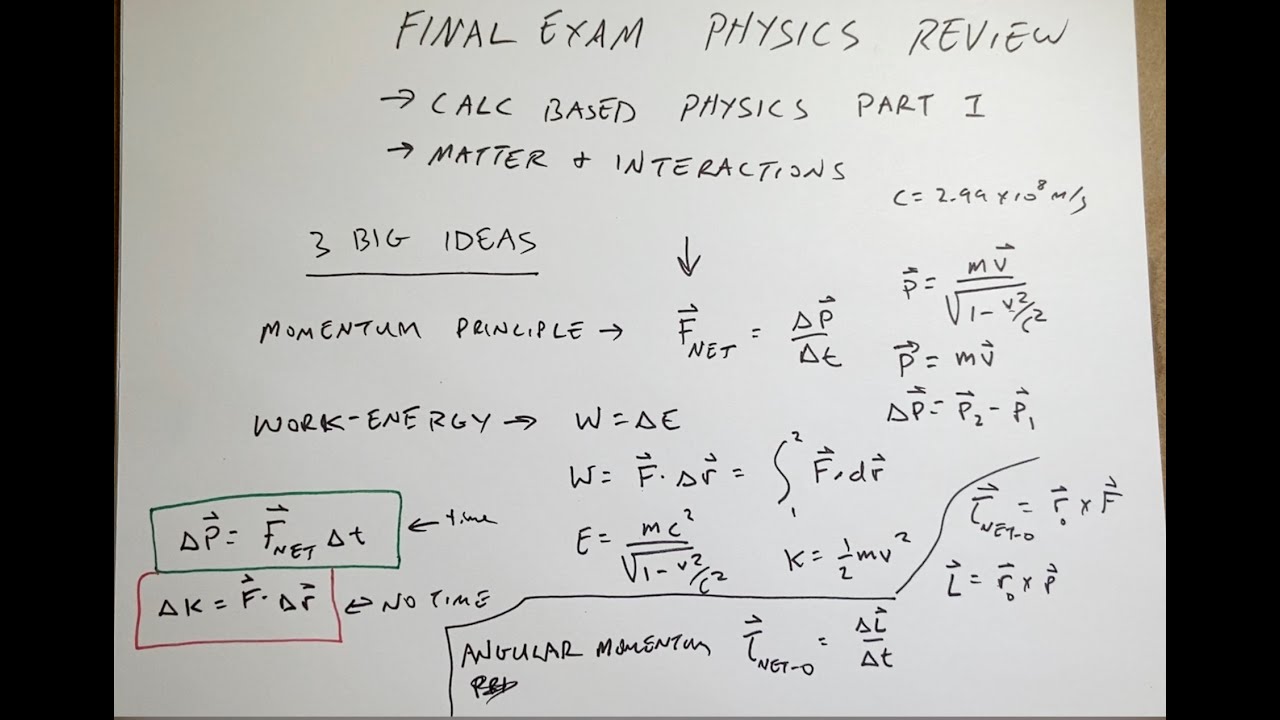 FINAL EXAM PHYSICS REVIEW
→ CALC BASED PHYSICS PART I
→ MATTER + INTERACTIONS
C = 2.99 × 10⁸ m/s
3 BIG IDEAS
↓
MOMENTUM PRINCIPLE → F⃗_NET = ΔP⃗/Δt
P⃗ = mv⃗/√(1-v²/c²)
P⃗ = mv⃗
ΔP⃗ = P⃗₂ - P⃗₁
WORK-ENERGY → W = ΔE
W = F⃗ · Δr⃗ = ∫₁² F⃗ · dr⃗
E = mc²/√(1-v²/c²)
K = ½mv²
ΔP⃗ = F⃗_NET Δt ← time
ΔK = F⃗ · Δr⃗ ← NO TIME
τ⃗_NET-O = r⃗₀ × F⃗
L⃗ = r⃗₀ × P⃗
ANGULAR MOMENTUM τ⃗_NET-O = ΔL⃗/Δt